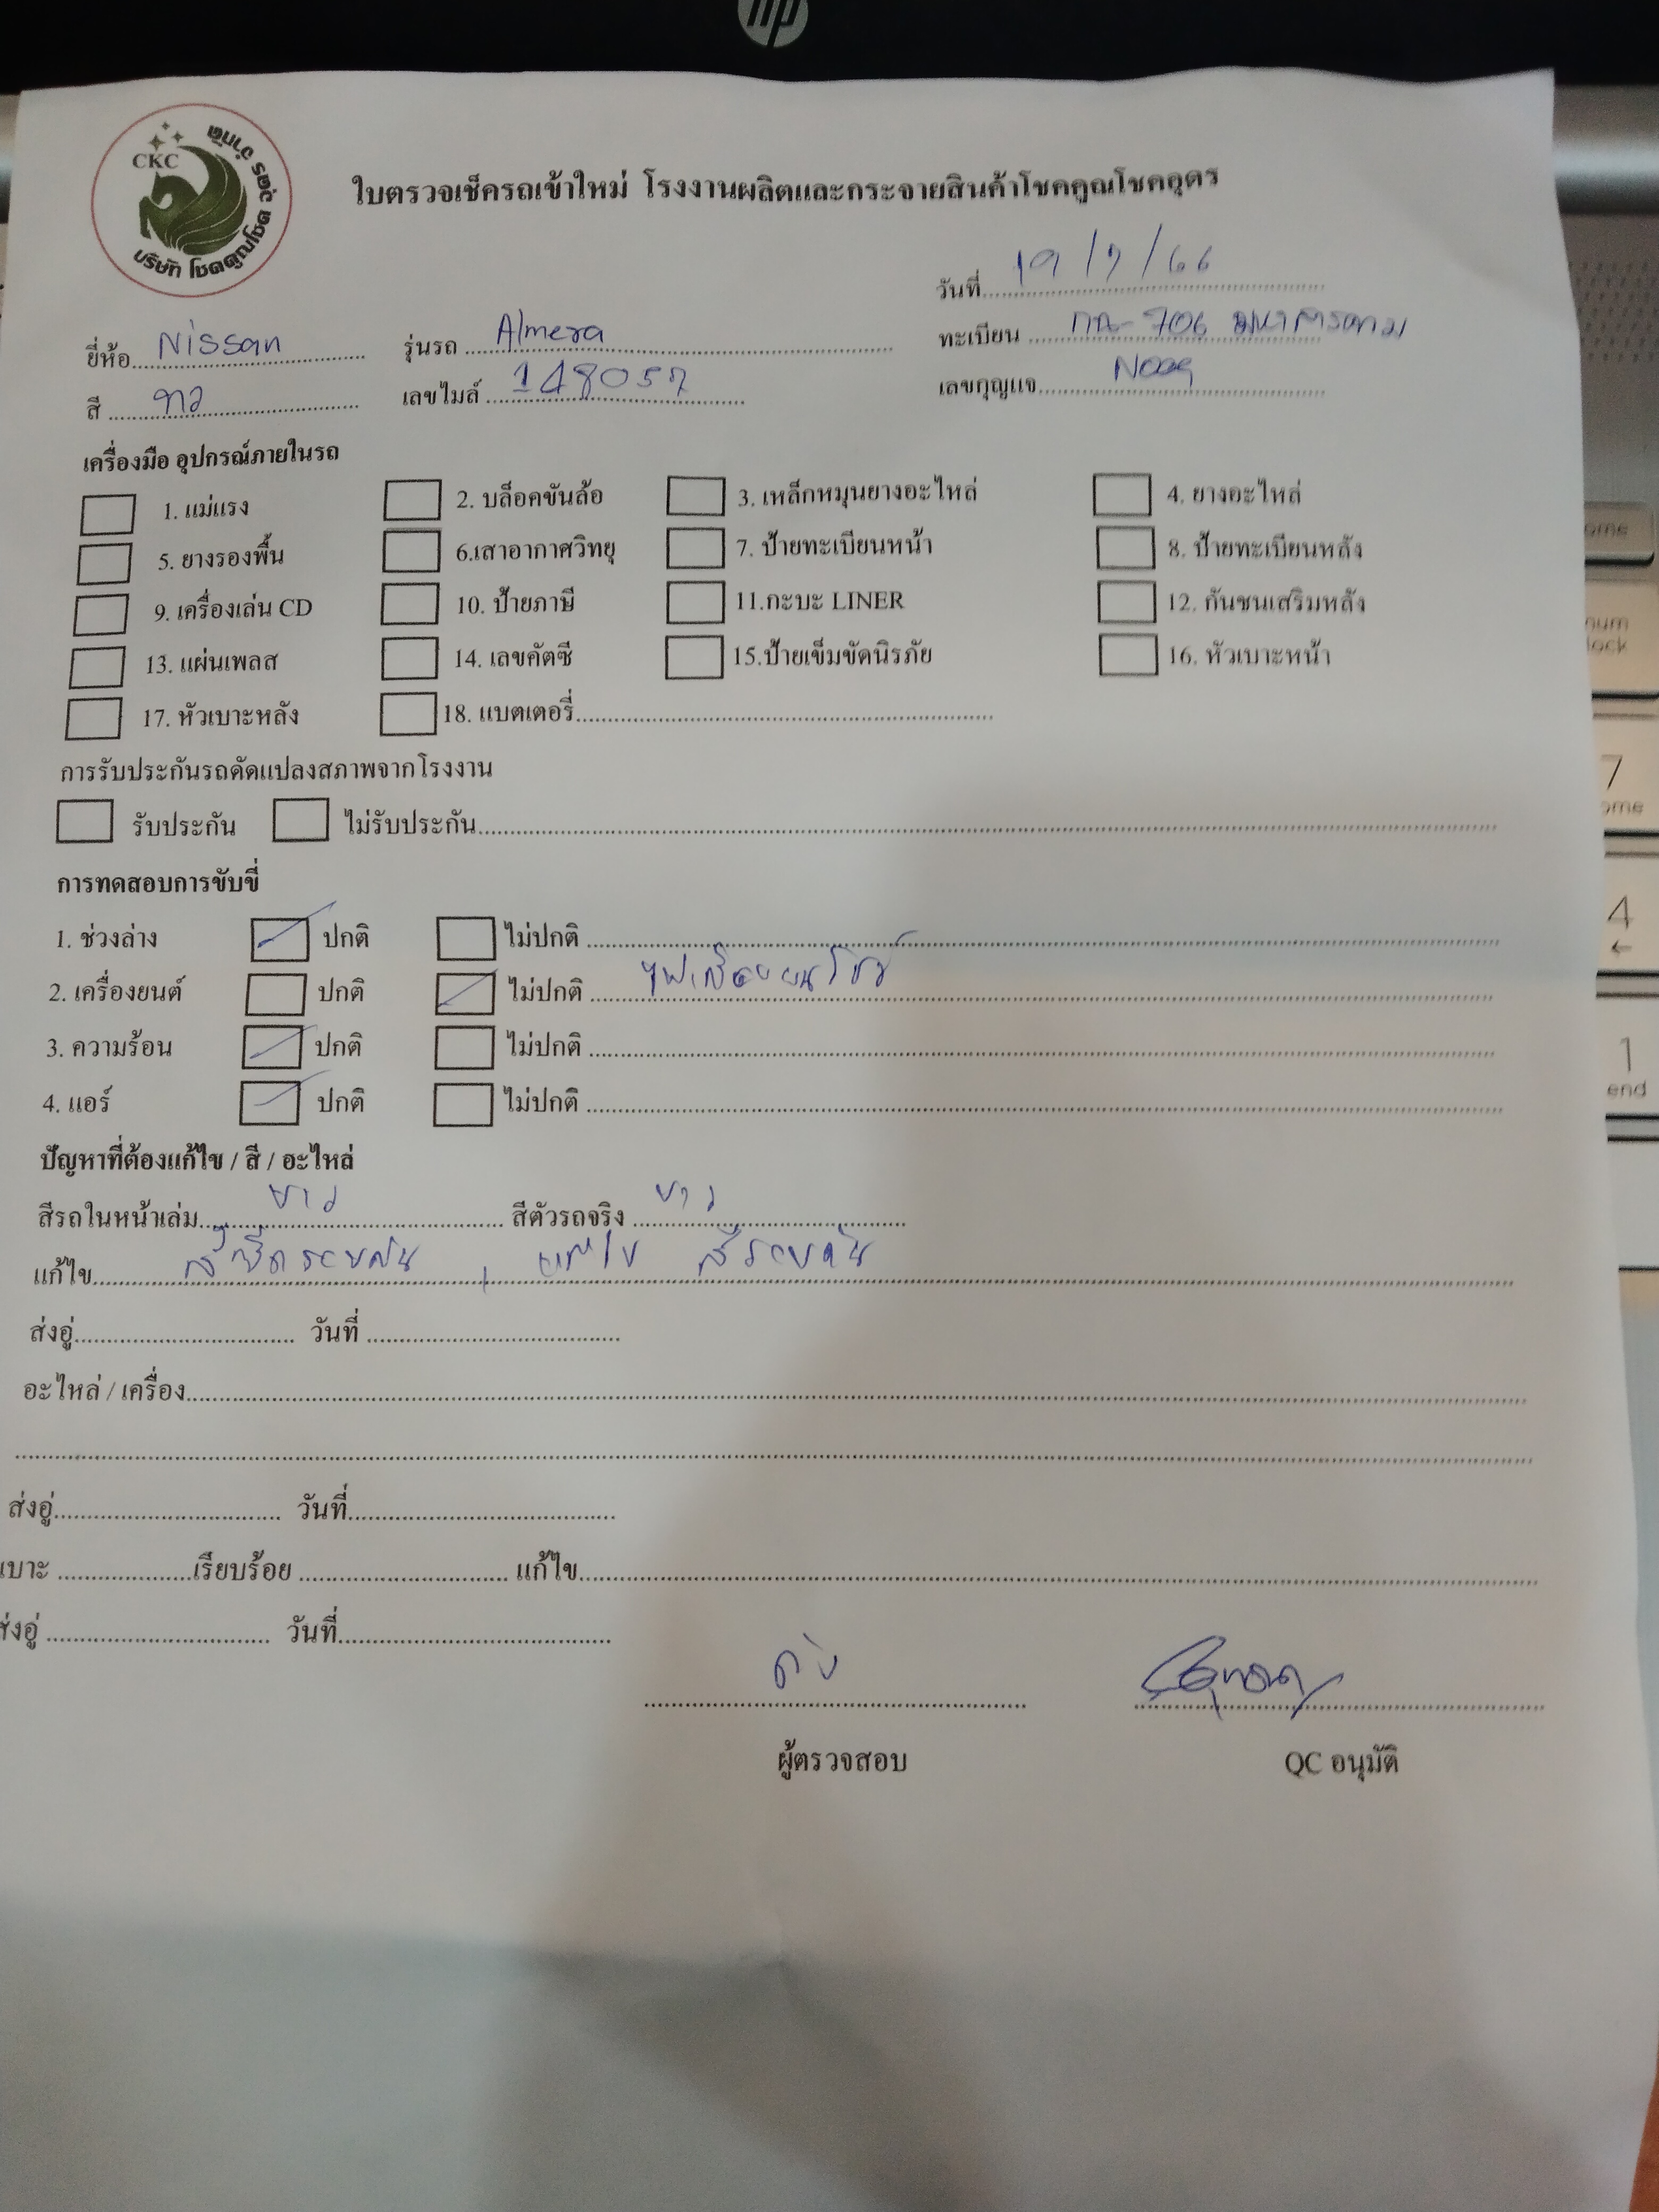 hp
CKC
บริษัท โชคคูณโชค อุดร จำกัด
ใบตรวจเช็ครถเข้าใหม่ โรงงานผลิตและกระจายสินค้าโชคคูณโชคอุดร
วันที่ 19/7/66
ยี่ห้อ Nissan รุ่นรถ Almera ทะเบียน 706 มหาสารคาม
สี ขาว เลขไมล์ 148057 เลขกุญแจ
เครื่องมือ อุปกรณ์ภายในรถ
1. แม่แรง 2. บล็อคขันล้อ 3. เหล็กหมุนยางอะไหล่ 4. ยางอะไหล่
5. ยางรองพื้น 6.เสาอากาศวิทยุ 7. ป้ายทะเบียนหน้า 8. ป้ายทะเบียนหลัง
9. เครื่องเล่น CD 10. ป้ายภาษี 11.กะบะ LINER 12. กันชนเสริมหลัง
13. แผ่นเพลส 14. เลขคัตซี 15.ป้ายเข็มขัดนิรภัย 16. หัวเบาะหน้า
17. หัวเบาะหลัง 18. แบตเตอรี่
การรับประกันรถดัดแปลงสภาพจากโรงงาน
รับประกัน ไม่รับประกัน
การทดสอบการขับขี่
1. ช่วงล่าง ปกติ ไม่ปกติ
2. เครื่องยนต์ ปกติ ไม่ปกติ ไฟเครื่องยนโชว์
3. ความร้อน ปกติ ไม่ปกติ
4. แอร์ ปกติ ไม่ปกติ
ปัญหาที่ต้องแก้ไข / สี / อะไหล่
สีรถในหน้าเล่ม ขาว สีตัวรถจริง ขาว
แก้ไข สีซีดรอบคัน , แก้ไข สีรอบคัน
ส่งอู่ วันที่
อะไหล่ / เครื่อง
ส่งอู่ วันที่
เบาะ เรียบร้อย แก้ไข
ส่งอู่ วันที่
ผู้ตรวจสอบ QC อนุมัติ
num
lock
7
4
←
1
end